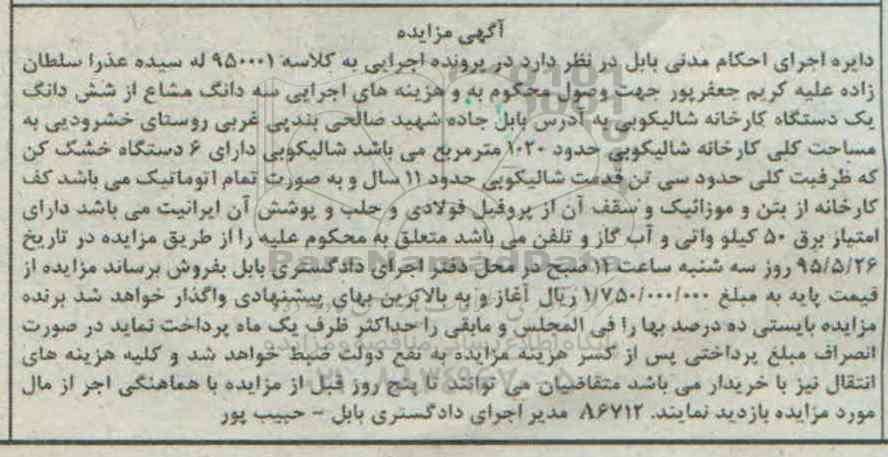 آگهی مزایده
دایره اجرای احکام مدنی بابل در نظر دارد در پرونده اجرایی به کلاسه ۹۵۰۰۰۱ له سیده عذرا سلطان
زاده علیه کریم جعفرپور جهت وصول محکوم به و هزینه های اجرایی سه دانگ مشاع از شش دانگ
یک دستگاه کارخانه شالیکوبی به آدرس بابل جاده شهید صالحی بندپی غربی روستای خشرودپی به
مساحت کلی کارخانه شالیکوبی حدود ۱۰۲۰ مترمربع می باشد شالیکوبی دارای ۶ دستگاه خشک کن
که ظرفیت کلی حدود سی تن قدمت شالیکوبی حدود ۱۱ سال و به صورت تمام اتوماتیک می باشد کف
کارخانه از بتن و موزائیک و سقف آن از پروفیل فولادی و حلب و پوشش آن ایرانیت می باشد دارای
امتیاز برق ۵۰ کیلو واتی و آب گاز و تلفن می باشد متعلق به محکوم علیه را از طریق مزایده در تاریخ
۹۵/۵/۲۶ روز سه شنبه ساعت ۱۲ صبح در محل دفتر اجرای دادگستری بابل بفروش برساند مزایده از
قیمت پایه به مبلغ ۱/۷۵۰/۰۰۰/۰۰۰ ریال آغاز و به بالاترین بهای پیشنهادی واگذار خواهد شد برنده
مزایده بایستی ده درصد بها را فی المجلس و مابقی را حداکثر ظرف یک ماه پرداخت نماید در صورت
انصراف مبلغ پرداختی پس از کسر هزینه مزایده به نفع دولت ضبط خواهد شد و کلیه هزینه های
انتقال نیز با خریدار می باشد متقاضیان می توانند تا پنج روز قبل از مزایده با هماهنگی اجر از مال
مورد مزایده بازدید نمایند. ۸۶۷۱۲ مدیر اجرای دادگستری بابل - حبیب پور
ParsNamadData
پایگاه اطلاع رسانی مناقصه و مزایده